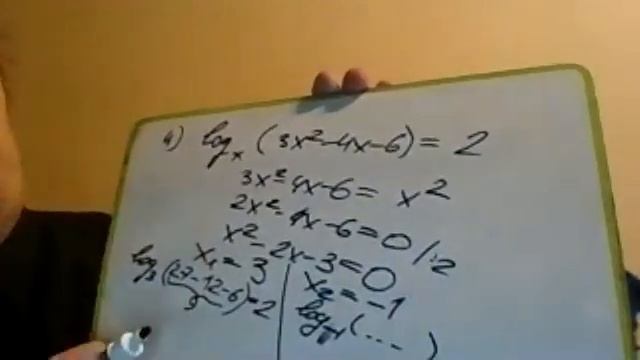 4) log_x (3x²-4x-6) = 2
3x²-4x-6 = x²
2x²-4x-6=0 /:2
x²-2x-3=0
x₁=3
log₃(27-12-6)=2
9
x₂=-1
log₋₁(....)